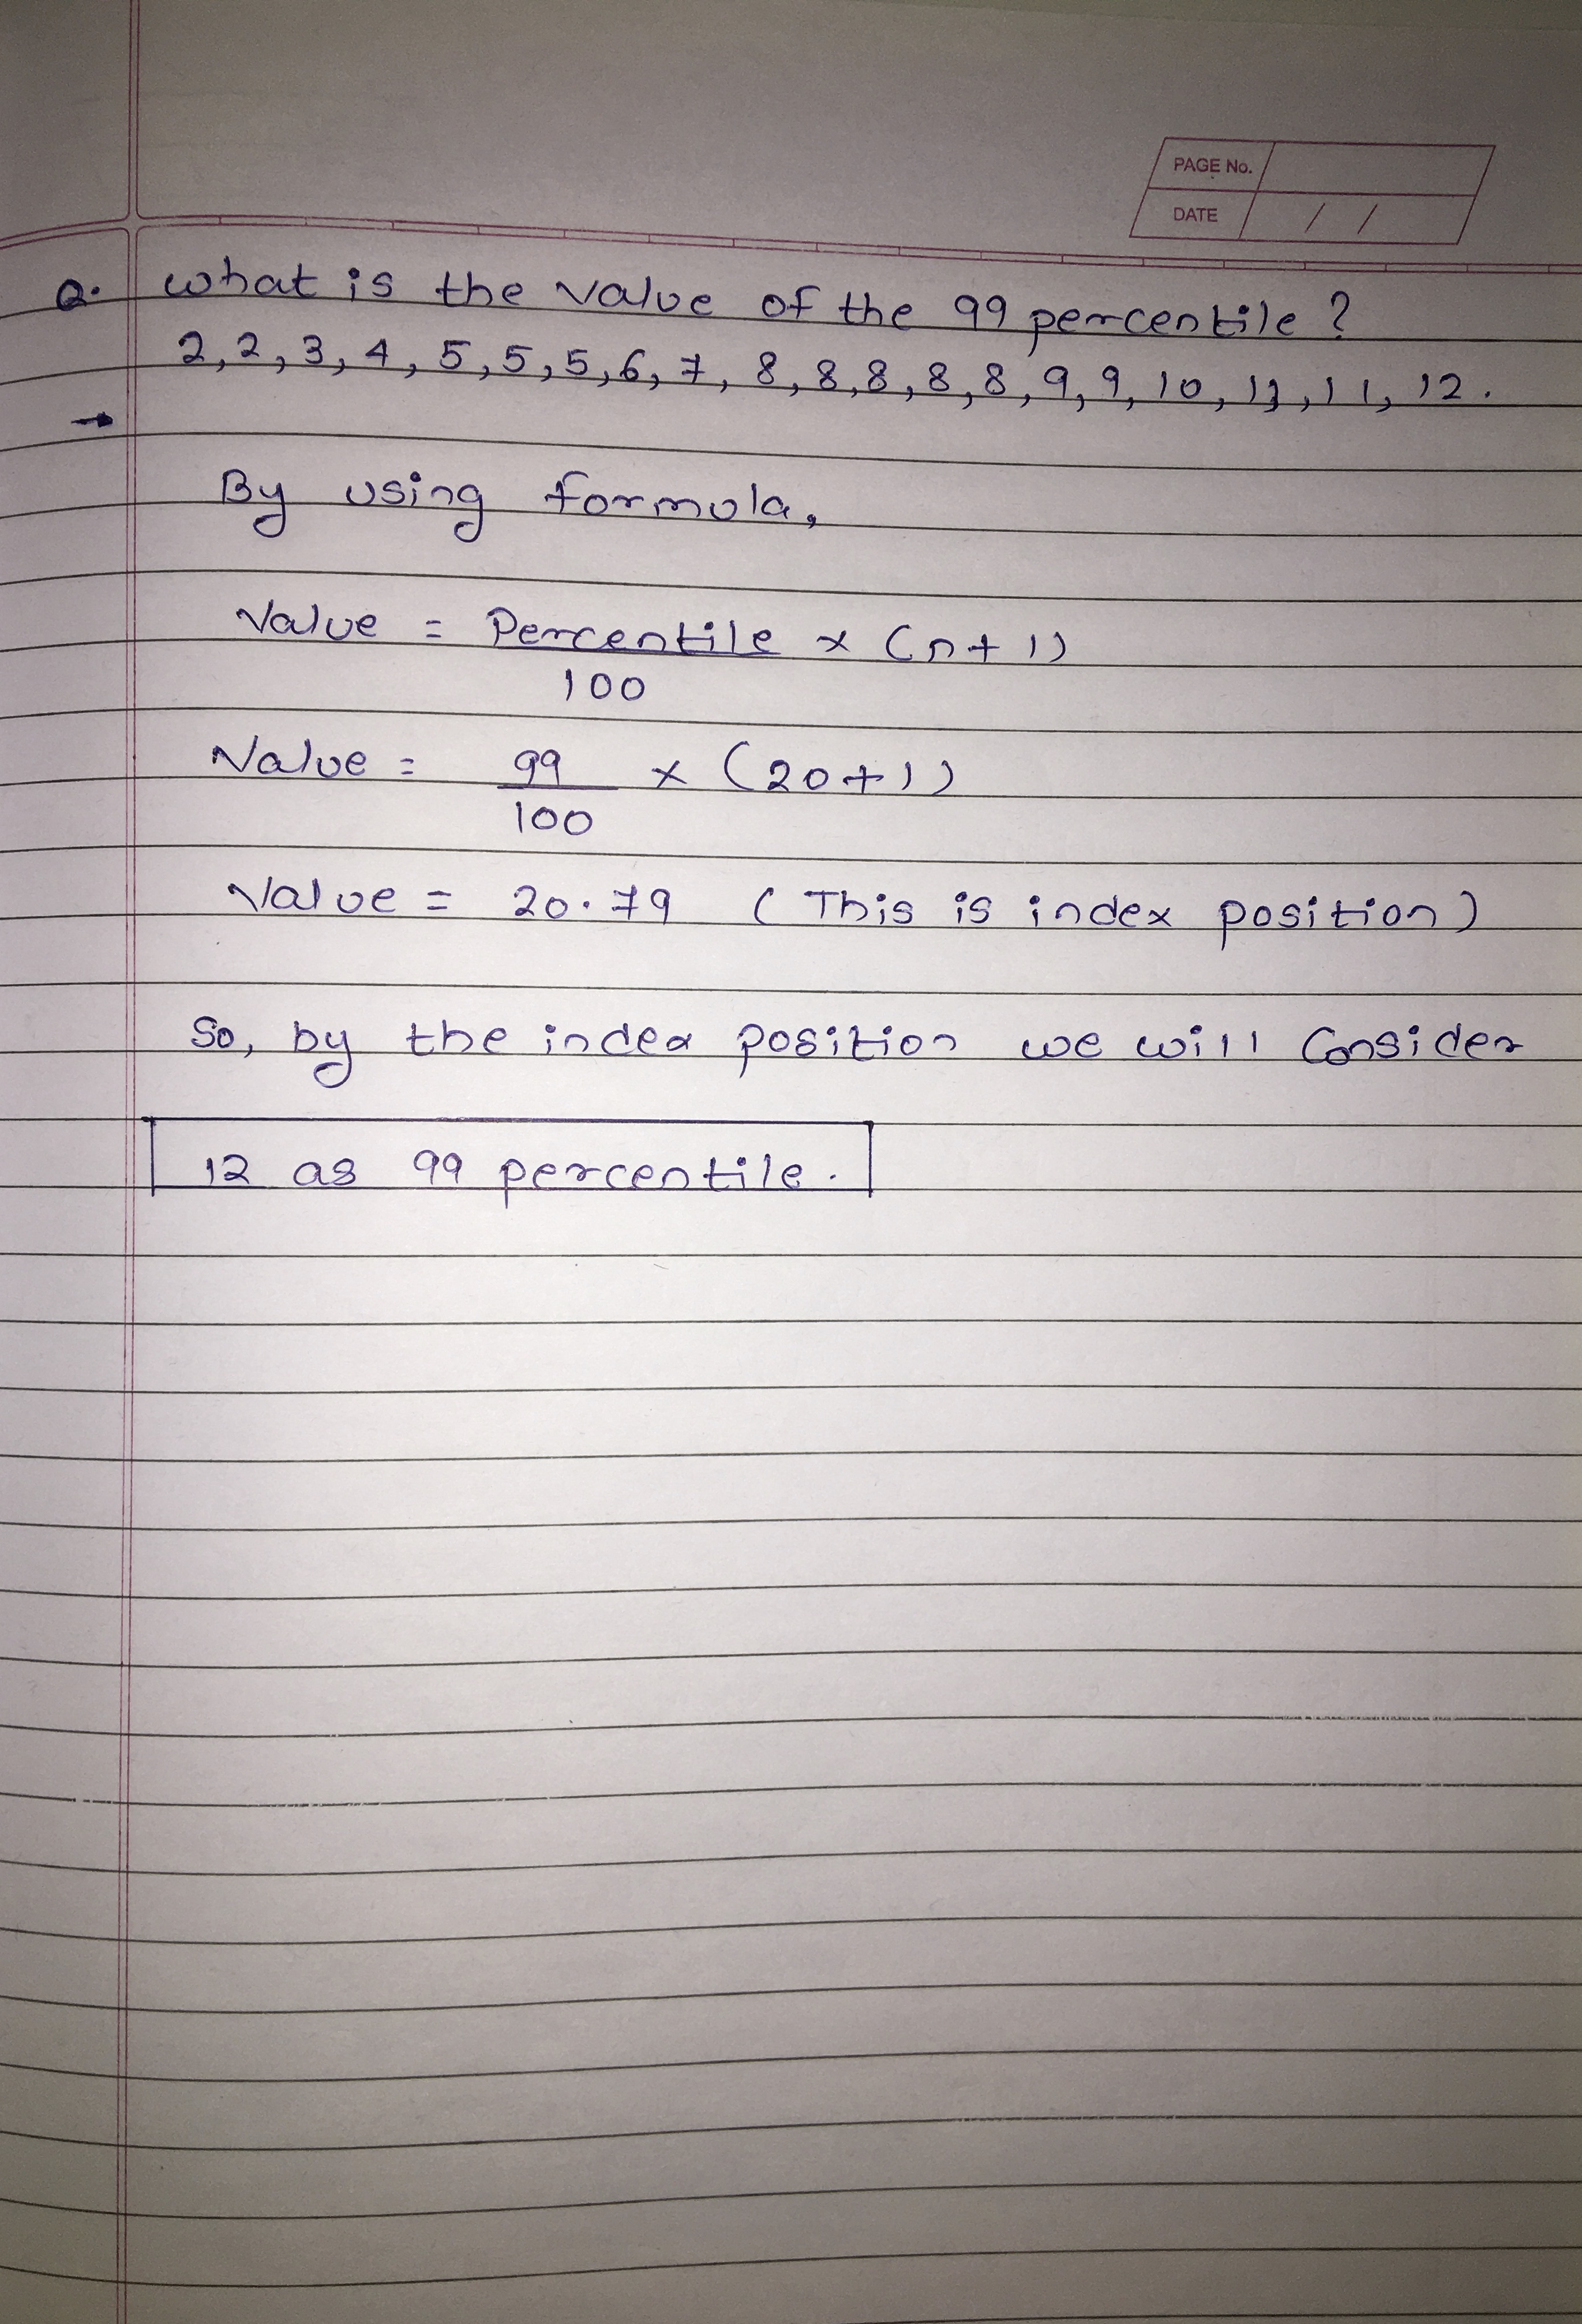 PAGE No.
DATE / /
Q. what is the value of the 99 percentile ?
2,2,3,4,5,5,5,6,7,8,8,8,8,8,9,9,10,11,11,12.
→
By using formula,
Value = Percentile x (n+1)
100
Value = 99 x (20+1)
100
Value = 20.79 ( This is index position )
So, by the index position we will Consider
12 as 99 percentile.